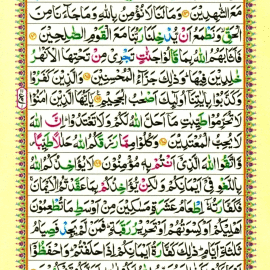 مَعَ الشّٰهِدِيْنَ ۝ وَمَا لَنَا لَا نُؤْمِنُ بِاللّٰهِ وَمَا جَآءَنَا مِنَ
الْحَقِّ ۙ وَنَطْمَعُ اَنْ يُّدْخِلَنَا رَبُّنَا مَعَ الْقَوْمِ الصّٰلِحِيْنَ ۝
فَاَثَابَهُمُ اللّٰهُ بِمَا قَالُوْا جَنّٰتٍ تَجْرِيْ مِنْ تَحْتِهَا الْاَنْهٰرُ
خٰلِدِيْنَ فِيْهَا ؕ وَذٰلِكَ جَزَآءُ الْمُحْسِنِيْنَ ۝ وَالَّذِيْنَ كَفَرُوْا
وَكَذَّبُوْا بِاٰيٰتِنَآ اُولٰٓئِكَ اَصْحٰبُ الْجَحِيْمِ ۝ يٰٓاَيُّهَا الَّذِيْنَ اٰمَنُوْا
لَا تُحَرِّمُوْا طَيِّبٰتِ مَآ اَحَلَّ اللّٰهُ لَكُمْ وَلَا تَعْتَدُوْا ؕ اِنَّ اللّٰهَ
لَا يُحِبُّ الْمُعْتَدِيْنَ ۝ وَكُلُوْا مِمَّا رَزَقَكُمُ اللّٰهُ حَلٰلًا طَيِّبًا ۪
وَّاتَّقُوا اللّٰهَ الَّذِيْٓ اَنْتُمْ بِهٖ مُؤْمِنُوْنَ ۝ لَا يُؤَاخِذُكُمُ اللّٰهُ
بِاللَّغْوِ فِيْٓ اَيْمَانِكُمْ وَلٰكِنْ يُّؤَاخِذُكُمْ بِمَا عَقَّدْتُّمُ الْاَيْمَانَ ۚ
فَكَفَّارَتُهٗٓ اِطْعَامُ عَشَرَةِ مَسٰكِيْنَ مِنْ اَوْسَطِ مَا تُطْعِمُوْنَ
اَهْلِيْكُمْ اَوْ كِسْوَتُهُمْ اَوْ تَحْرِيْرُ رَقَبَةٍ ؕ فَمَنْ لَّمْ يَجِدْ فَصِيَامُ
ثَلٰثَةِ اَيَّامٍ ؕ ذٰلِكَ كَفَّارَةُ اَيْمَانِكُمْ اِذَا حَلَفْتُمْ ؕ وَاحْفَظُوْٓا